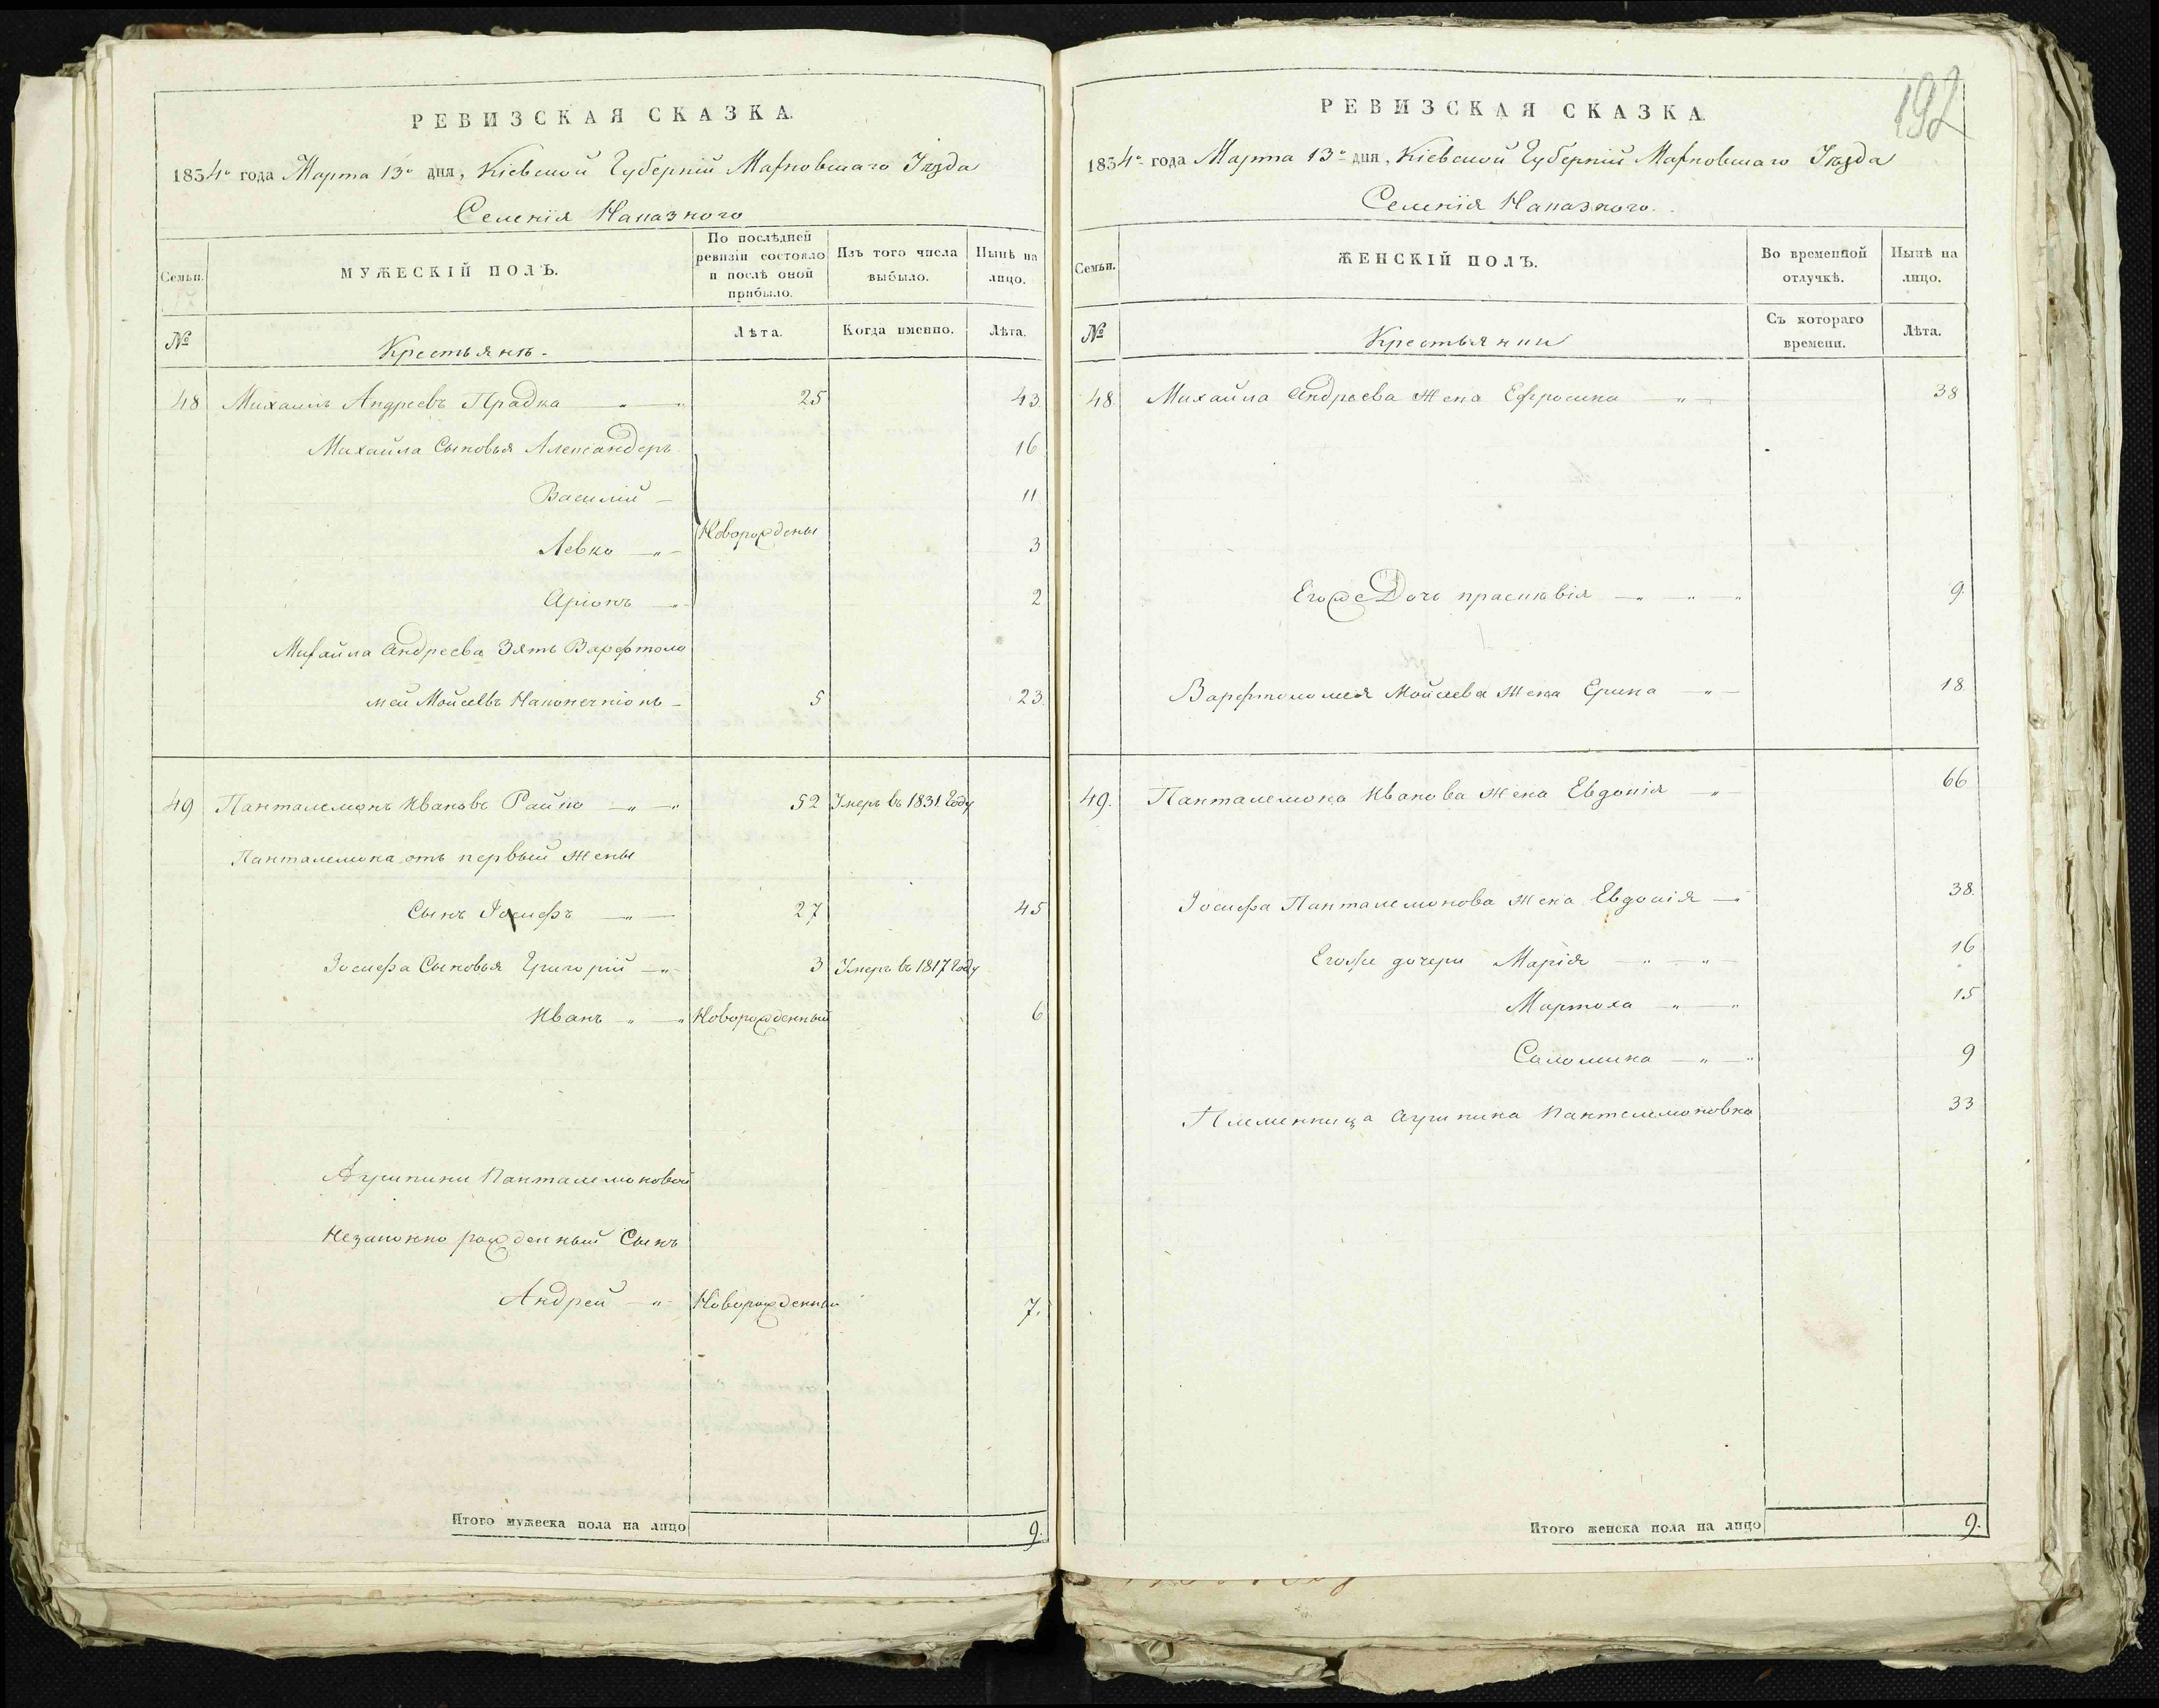 РЕВИЗСКАЯ СКАЗКА.
1834го года Марта 13го дня, Кіевской Губерніи Махновскаго Уѣзда
Селенія Наказного
Семьи.
МУЖЕСКІЙ ПОЛЪ.
По послѣдней ревизіи состояло и послѣ оной прибыло.
Изъ того числа выбыло.
Нынѣ на лицо.
№
Крестьянѣ.
Лѣта.
Когда именно.
Лѣта.
48 Михаилъ Андреевъ Прадка 25 43.
Михайла Сыновья Александеръ 16
Василій 11
Левко Новорождены 3
Аріонъ 2
Михайла Андреева Зять Варфтоло
мей Мойсевъ Наконечніокъ 5 23.
49 Панталемонъ Ивановъ Райко 52 Умеръ въ 1831 Году
Панталемона отъ первый жены
Сынъ Іосифъ 27 45
Іосифа Сыновья Григорій 3 Умеръ въ 1817 Году
Иванъ Новорожденный 6
Агрипини Панталемоновой
Незаконно рожденный Сынъ
Андрей Новорожденный 7.
Итого мужеска пола на лицо 9.
192
РЕВИЗСКАЯ СКАЗКА.
1834го года Марта 13го дня, Кіевской Губерніи Махновскаго Уѣзда
Селенія Наказного.
Семьи.
ЖЕНСКІЙ ПОЛЪ.
Во временной отлучкѣ.
Нынѣ на лицо.
№
Крестьянки
Съ котораго времени.
Лѣта.
48. Михайла Андреева жена Ефросина 38
Егоже Дочь прасковія 9.
Варфтоломея Мойсева жена Ерина 18.
49. Панталемона Иванова жена Евдокія 66
Іосифа Панталемонова жена Евдокія 38.
Егоже дочери Марія 16
Мартоха 15
Саломина 9
Племенница Агрипина Пантелемоновна 33
Итого женска пола на лицо 9.